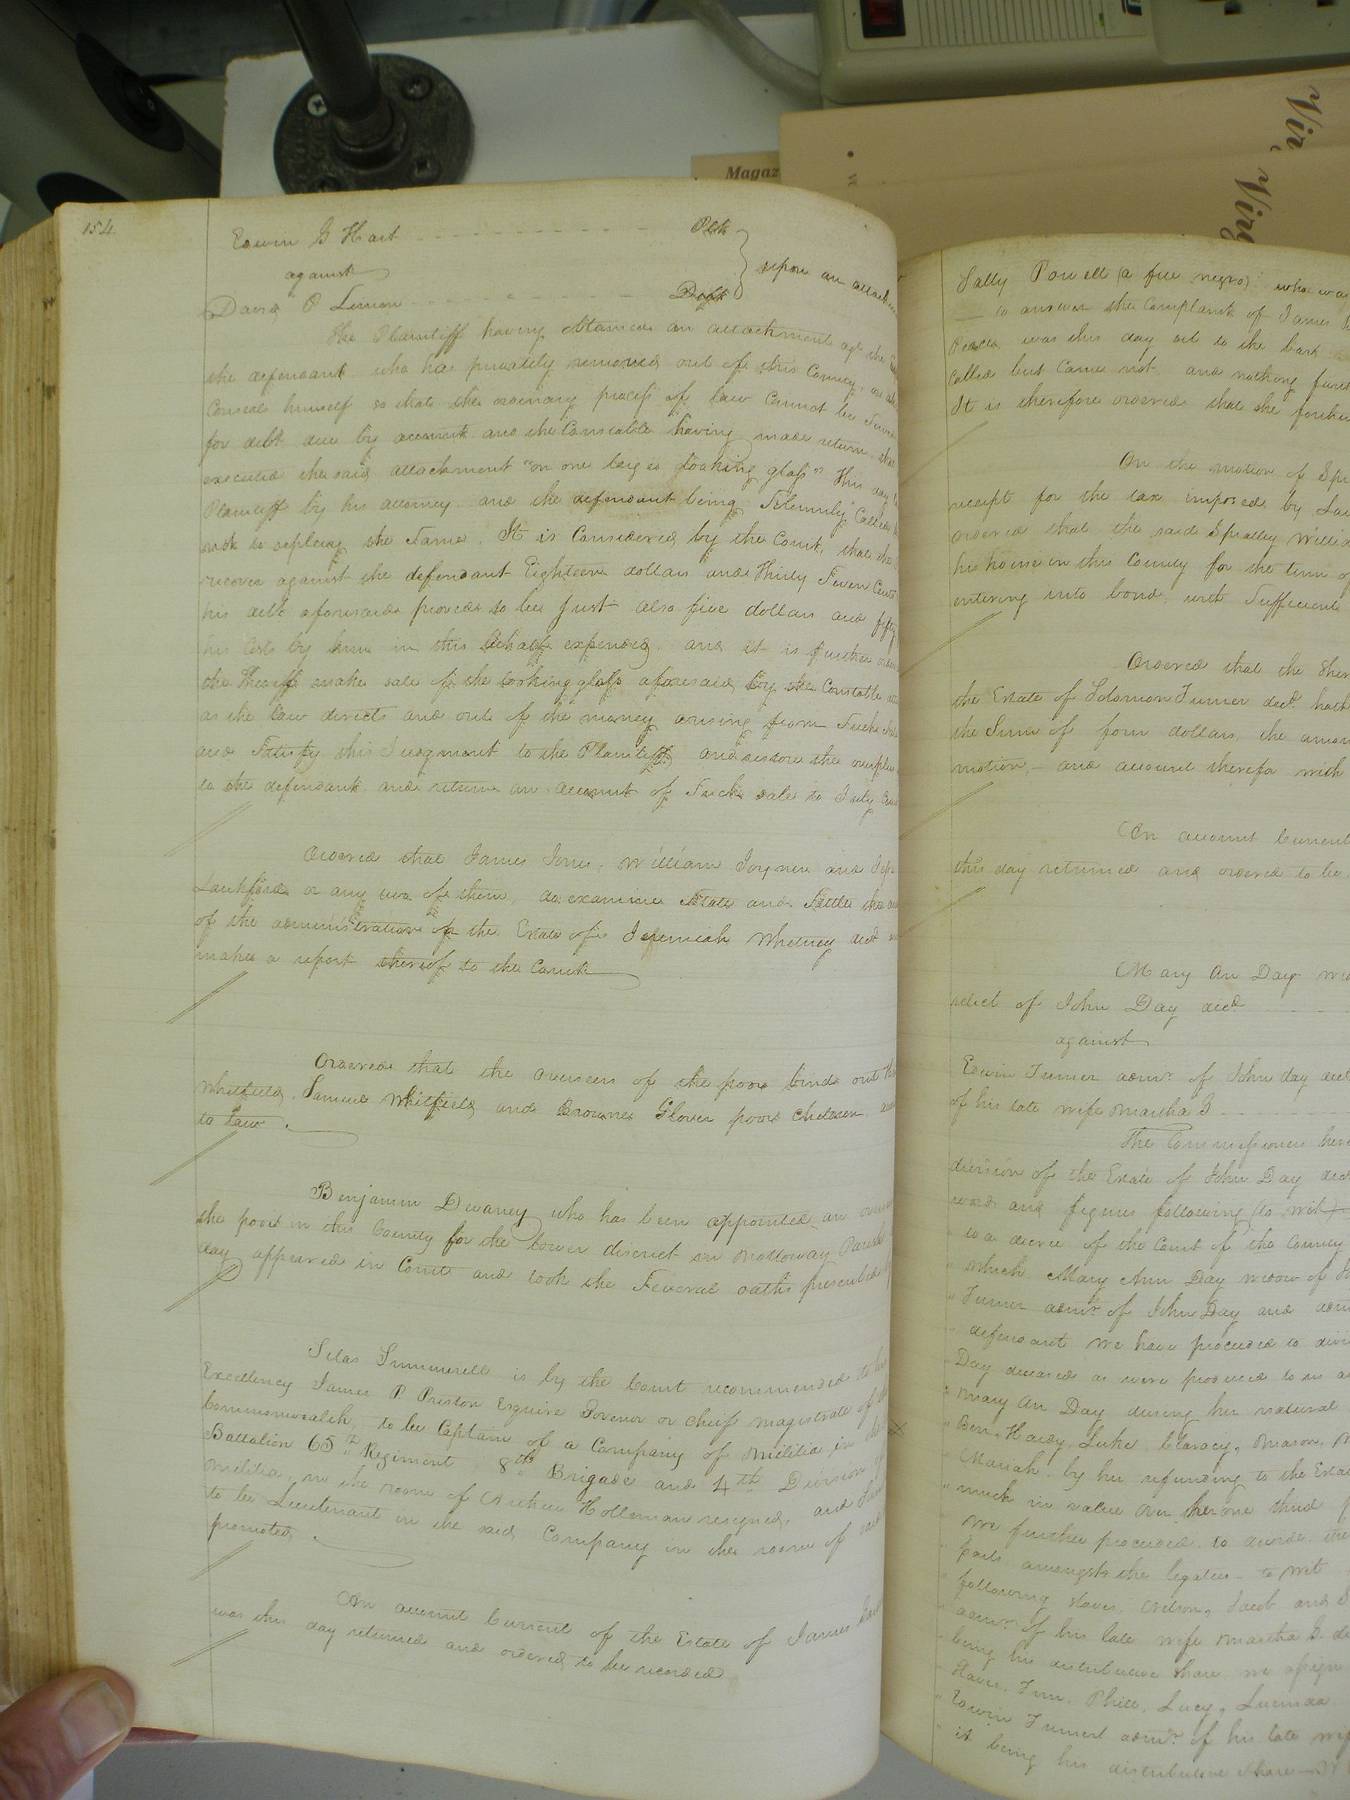 Magaz
Vir
Virg
154
Edwin G Hart Pltf
against upon an attach
David O Limon Deft
The Plaintiff having obtained an attachment agt the
the defendant who has privately removed out of this County, or
Conceals himself so that the ordinary process of law Cannot be Serve
for debt due by account and the Constable having made return that
executed the said attachment "on one large looking glass" This day
Plaintiff by his attorney and the defendant being Solemnly Called
not to replevy the Same. It is Considered by the Court, that the
recover against the defendant Eighteen dollars and Thirty Seven Cents
his debt aforesaid proved to be Just also five dollars and fifty
his Costs by him in this behalf expended. and it is further orde
the Sheriff make sale of the looking glass aforesaid by the Constable
as the law directs and out of the money arising from Such Sale
and Satisfy this Judgment to the Plaintiff and restore the overplus
to the defendant and return an account of Such sale to July
Ordered that James Jones, William Joyner and
Lankford or any two of them, do examine State and Settle the
of the administration of the Estate of Jeremiah Whitney decd
make a report thereof to the Court
Ordered that the overseers of the poor bind out
Whitfield, Samuel Whitfield and Browner Glover poor children
to Law.
Benjamin Dewaney who has been appointed an over
the poor in this County for the lower district in Nottoway Parish
day appeared in Court and took the Several oaths prescribed
Silas Summerell is by the Court recommended to his
Excellency James P. Preston Esquire Govenor or chief magistrate of the
Commonwealth, to be Captain of a Company of militia in the
Battalion 65th Regiment 8th Brigade and 4th Division of
militia, in the room of Holleman resigned, and
to be Lieutenant in the said Company in the room of said
promoted.
An account Current of the Estate of James
was this day returned and ordered to be recorded
Sally Powell (a free negro) who was
to answer the Complaint of James
was this day set to the bar
Called but Came not and nothing furth
It is therefore ordered that she forthw
On the motion of Spr
receipt for the tax imposed by Law
ordered that the said Spratley Willia
his house in this County for the term of
entering into bond with Sufficient
Ordered that the Sher
the Estate of Solomon Turner decd. hath
the Sum of four dollars the amou
motion, and account therefor with
An account Current
this day returned and ordered to be
Mary An Day wid
relict of John Day decd
against
Edwin Turner admr. of John day decd
of his late wife Martha B
The Commissioners here
division of the Estate of John Day decd
words and figures following (to wit)
to a decree of the Court of the County
which Mary Ann Day widow of Jo
Turner admr. of John Day and adm
defendant we have proceeded to divi
Day deceased as were produced to us as
Mary An Day during her natural
Ben, Hardy, Luke, Claracy, Mason,
Mariah by her refunding to the Estat
much in value over her one third
We further proceeded to divide the
parts amongst the legatees to wit
following slaves, Nelson, Jacob and
admr. of his late wife Martha B.
being his distributive share we assign
Slaves, Tom, Phill, Lucy, Lucinda
Edwin Turner admr. of his late wife
it being his distributive share